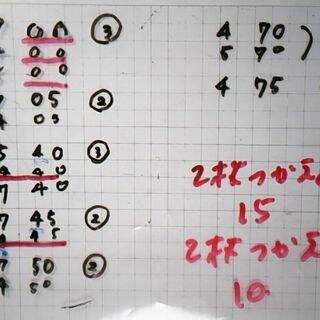 00 ③
00
00
7 05 ②
05
5 40 ③
4 40
7 40
7 45 ②
45
7 50 ②
4 50
4 70
5 70
4 75
2枚つかえ
15
2枚つかえ
10